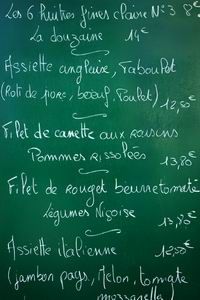 Les 6 huîtres fines claire N°3 8€
La douzaine 14€
Assiette anglaise, Taboulet
(Roti de porc, bœuf, Poulet) 12,50€
Filet de canette aux raisins
Pommes rissolées 13,80€
Filet de rouget beurre tomaté
légumes Niçoise 13,70€
Assiette italienne 12,50€
(jambon pays, Melon, tomate
mozzarella